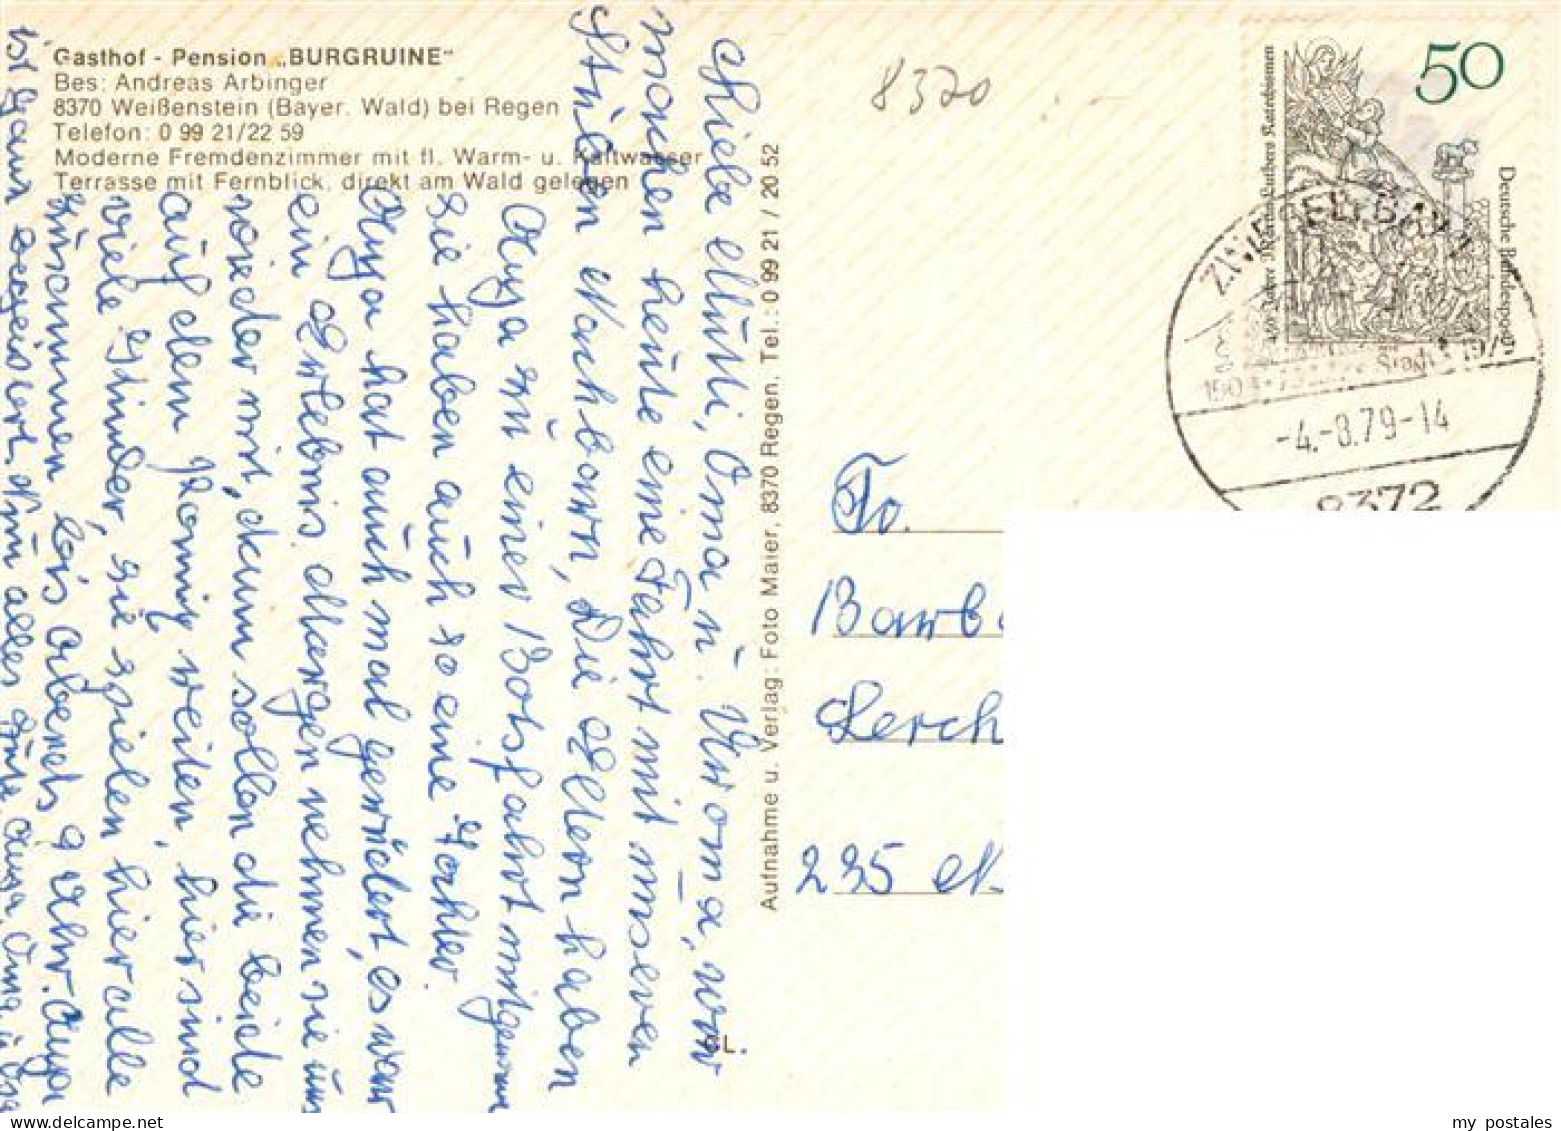 Gasthof - Pension „BURGRUINE“
Bes: Andreas Arbinger
8370 Weißenstein (Bayer. Wald) bei Regen
Telefon: 0 99 21/22 59
Moderne Fremdenzimmer mit fl. Warm- u. Kaltwasser
Terrasse mit Fernblick, direkt am Wald gelegen
Liebe Mutti, Oma u. Uroma, wir
machen heute eine Fahrt mit unseren
Nachbarn, Die Eltern haben
Anja zu einer Botsfahrt mitgenom
sie haben auch so eine Tochter.
Anja hat auch mal gerudert, es war
ein Erlebnis. Morgen nehmen sie uns
wieder mit, dann sollen die beide
auf dem Pony reiten, hier sind
viele Kinder, sie spielen hier alle
zusammen, bis abends 9 Uhr. Anja
ist ganz begeistert. Nun alles Gute
Aufnahme u. Verlag: Foto Maier, 8370 Regen, Tel.: 0 99 21 / 20 52
GL.
8370
50
450 Jahre Martin Luthers Katechismen
Deutsche Bundespost
-4.-8.79-14
8372
To.
Barb
Lerch
235
my postales